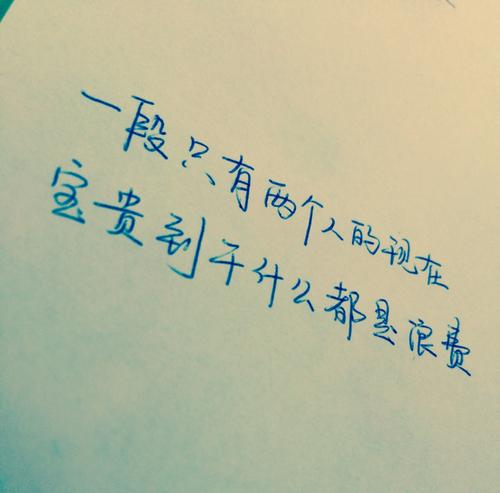 一段只有两个人的现在
宝贵到干什么都是浪费